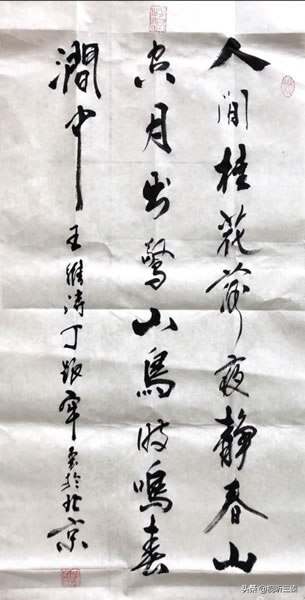 人閒桂花落夜静春山
空月出驚山鳥時鳴春
澗中
王維詩丁書於北京
头条